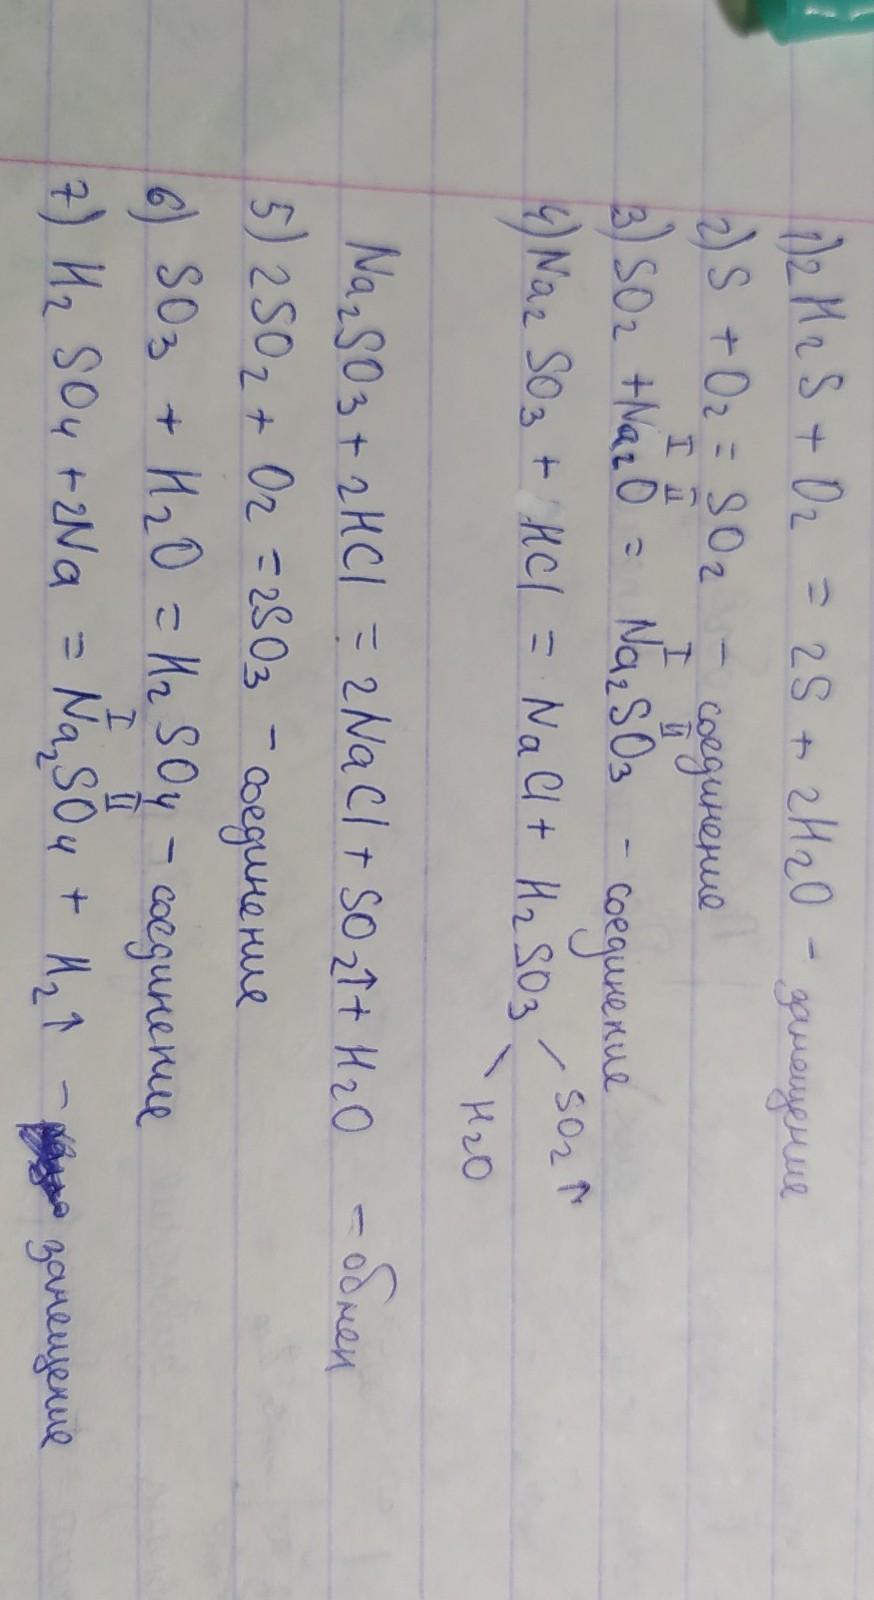 1) 2H₂S + O₂ = 2S + 2H₂O - замещение
2) S + O₂ = SO₂ - соединение
I II I II
3) SO₂ + Na₂O = Na₂SO₃ - соединение
4) Na₂SO₃ + HCl = NaCl + H₂SO₃
SO₂↑
H₂O
Na₂SO₃ + 2HCl = 2NaCl + SO₂↑ + H₂O - обмен
5) 2SO₂ + O₂ = 2SO₃ - соединение
6) SO₃ + H₂O = H₂SO₄ - соединение
I II
7) H₂SO₄ + 2Na = Na₂SO₄ + H₂↑ - замещение